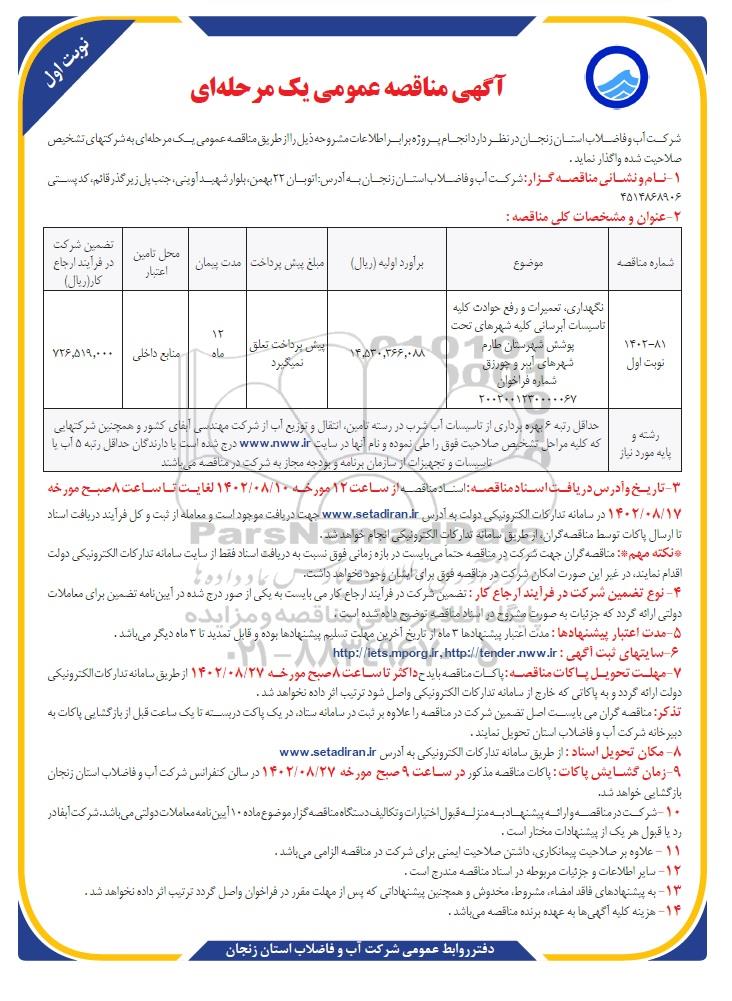 نوبت اول
آگهی مناقصه عمومی یک مرحله‌ای
شرکت آب و فاضلاب استان زنجان در نظر دارد انجام پروژه برابر اطلاعات مشروحه ذیل را از طریق مناقصه عمومی یک مرحله‌ای به شرکتهای تشخیص
صلاحیت شده واگذار نماید .
۱-نام و نشانی مناقصه گزار: شرکت آب و فاضلاب استان زنجان به آدرس: اتوبان ۲۲بهمن، بلوار شهید آوینی، جنب پل زیر گذر قائم، کد پستی
۴۵۱۴۸۶۸۹۰۶
۲-عنوان و مشخصات کلی مناقصه :
شماره مناقصه	موضوع	برآورد اولیه (ریال)	مبلغ پیش پرداخت	مدت پیمان	محل تامین اعتبار	تضمین شرکت در فرآیند ارجاع کار(ریال)
۱۴۰۲-۸۱ نوبت اول	نگهداری، تعمیرات و رفع حوادث کلیه تاسیسات آبرسانی کلیه شهرهای تحت پوشش شهرستان طارم شهرهای آببر و چورزق شماره فراخوان ۲۰۰۲۰۰۱۲۳۰۰۰۰۰۶۷	۱۴,۵۳۰,۳۶۶,۰۸۸	پیش پرداخت تعلق نمیگیرد	۱۲ ماه	منابع داخلی	۷۲۶,۵۱۹,۰۰۰
رشته و پایه مورد نیاز	حداقل رتبه ۶ بهره برداری از تاسیسات آب شرب در رسته تامین، انتقال و توزیع آب از شرکت مهندسی آبفای کشور و همچنین شرکتهایی
که کلیه مراحل تشخیص صلاحیت فوق را طی نموده و نام آنها در سایت www.nww.ir درج شده است یا دارندگان حداقل رتبه ۵ آب یا
تاسیسات و تجهیزات از سازمان برنامه و بودجه مجاز به شرکت در مناقصه می‌باشند
۳-تاریخ و آدرس دریافت اسناد مناقصه: اسناد مناقصه از ساعت ۱۲ مورخه ۱۴۰۲/۰۸/۱۰ لغایت تا ساعت ۸ صبح مورخه
۱۴۰۲/۰۸/۱۷ در سامانه تدارکات الکترونیکی دولت به آدرس www.setadiran.ir جهت دریافت موجود است و معامله از ثبت و کل فرآیند دریافت اسناد
تا ارسال پاکات توسط مناقصه‌گران، از طریق سامانه تدارکات الکترونیکی انجام خواهد شد .
*نکته مهم*: مناقصه‌گران جهت شرکت در مناقصه حتما می‌بایست در بازه زمانی فوق نسبت به دریافت اسناد فقط از سایت سامانه تدارکات الکترونیکی دولت
اقدام نمایند، در غیر این صورت امکان شرکت در مناقصه فوق برای ایشان وجود نخواهد داشت.
۴- نوع تضمین شرکت در فرآیند ارجاع کار : تضمین شرکت در فرآیند ارجاع کار می بایست به یکی از صور درج شده در آیین‌نامه تضمین برای معاملات
دولتی ارائه گردد که جزئیات به صورت مشروح در اسناد مناقصه توضیح داده شده است :
۵-مدت اعتبار پیشنهادها : مدت اعتبار پیشنهادها ۳ ماه از تاریخ آخرین مهلت تسلیم پیشنهادها بوده و قابل تمدید تا ۳ ماه دیگر می‌باشد .
۶-سایتهای ثبت آگهی : http://iets.mporg.ir, http://tender.nww.ir
۷-مهلت تحویل پاکات مناقصه: پاکات مناقصه باید حداکثر تا ساعت ۸ صبح مورخه ۱۴۰۲/۰۸/۲۷ از طریق سامانه تدارکات الکترونیکی
دولت ارائه گردد و به پاکاتی که خارج از سامانه تدارکات الکترونیکی واصل شود ترتیب اثر داده نخواهد شد .
تذکر: مناقصه گران می بایست اصل تضمین شرکت در مناقصه را علاوه بر ثبت در سامانه ستاد، در یک پاکت دربسته تا یک ساعت قبل از بازگشایی پاکات به
دبیرخانه شرکت آب و فاضلاب استان تحویل نمایند .
۸- مکان تحویل اسناد : از طریق سامانه تدارکات الکترونیکی به آدرس www.setadiran.ir
۹-زمان گشایش پاکات: پاکات مناقصه مذکور در ساعت ۹ صبح مورخه ۱۴۰۲/۰۸/۲۷ در سالن کنفرانس شرکت آب و فاضلاب استان زنجان
بازگشایی خواهد شد.
۱۰-شرکت در مناقصه و ارائه پیشنهاد به منزله قبول اختیارات و تکالیف دستگاه مناقصه گزار موضوع ماده ۱۰ آیین نامه معاملات دولتی می‌باشد. شرکت آبفا در
رد یا قبول هر یک از پیشنهادات مختار است .
۱۱ - علاوه بر صلاحیت پیمانکاری، داشتن صلاحیت ایمنی برای شرکت در مناقصه الزامی می‌باشد .
۱۲- سایر اطلاعات و جزئیات مربوطه در اسناد مناقصه مندرج است .
۱۳- به پیشنهادهای فاقد امضاء، مشروط، مخدوش و همچنین پیشنهاداتی که پس از مهلت مقرر در فراخوان واصل گردد ترتیب اثر داده نخواهد شد .
۱۴- هزینه کلیه آگهی‌ها به عهده برنده مناقصه می‌باشد .
دفتر روابط عمومی شرکت آب و فاضلاب استان زنجان